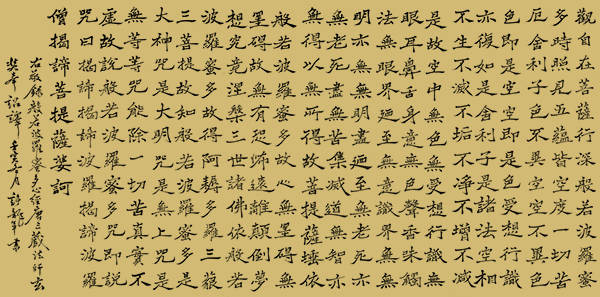 觀自在菩薩行深般若波羅蜜
多時照見五蘊皆空度一切苦
厄舍利子色不異空空不異色
色即是空空即是色受想行識
亦復如是舍利子是諸法空相
不生不滅不垢不淨不增不減
是故空中無色無受想行識無
眼耳鼻舌身意無色聲香味觸
法無眼界廼至無意識界無無
明亦無無明盡廼至無老死亦
無老死盡無苦集滅道無智亦
無得以無所得故菩提薩埵依
般若波羅蜜多故心無罣礙無
罣礙故無有恐怖遠離顛倒夢
想究竟涅槃三世諸佛依般若
波羅蜜多故得阿耨多羅三藐
三菩提故知般若波羅蜜多是
大神咒是大明咒是無上咒是
無等等咒能除一切苦真實不
虛故說般若波羅蜜多咒即說
咒曰揭諦揭諦波羅揭諦波羅
僧揭諦菩提薩婆訶
右敬錄般若波羅蜜多心經唐三藏法師玄
奘奉詔譯 壬寅 月 許龍年書